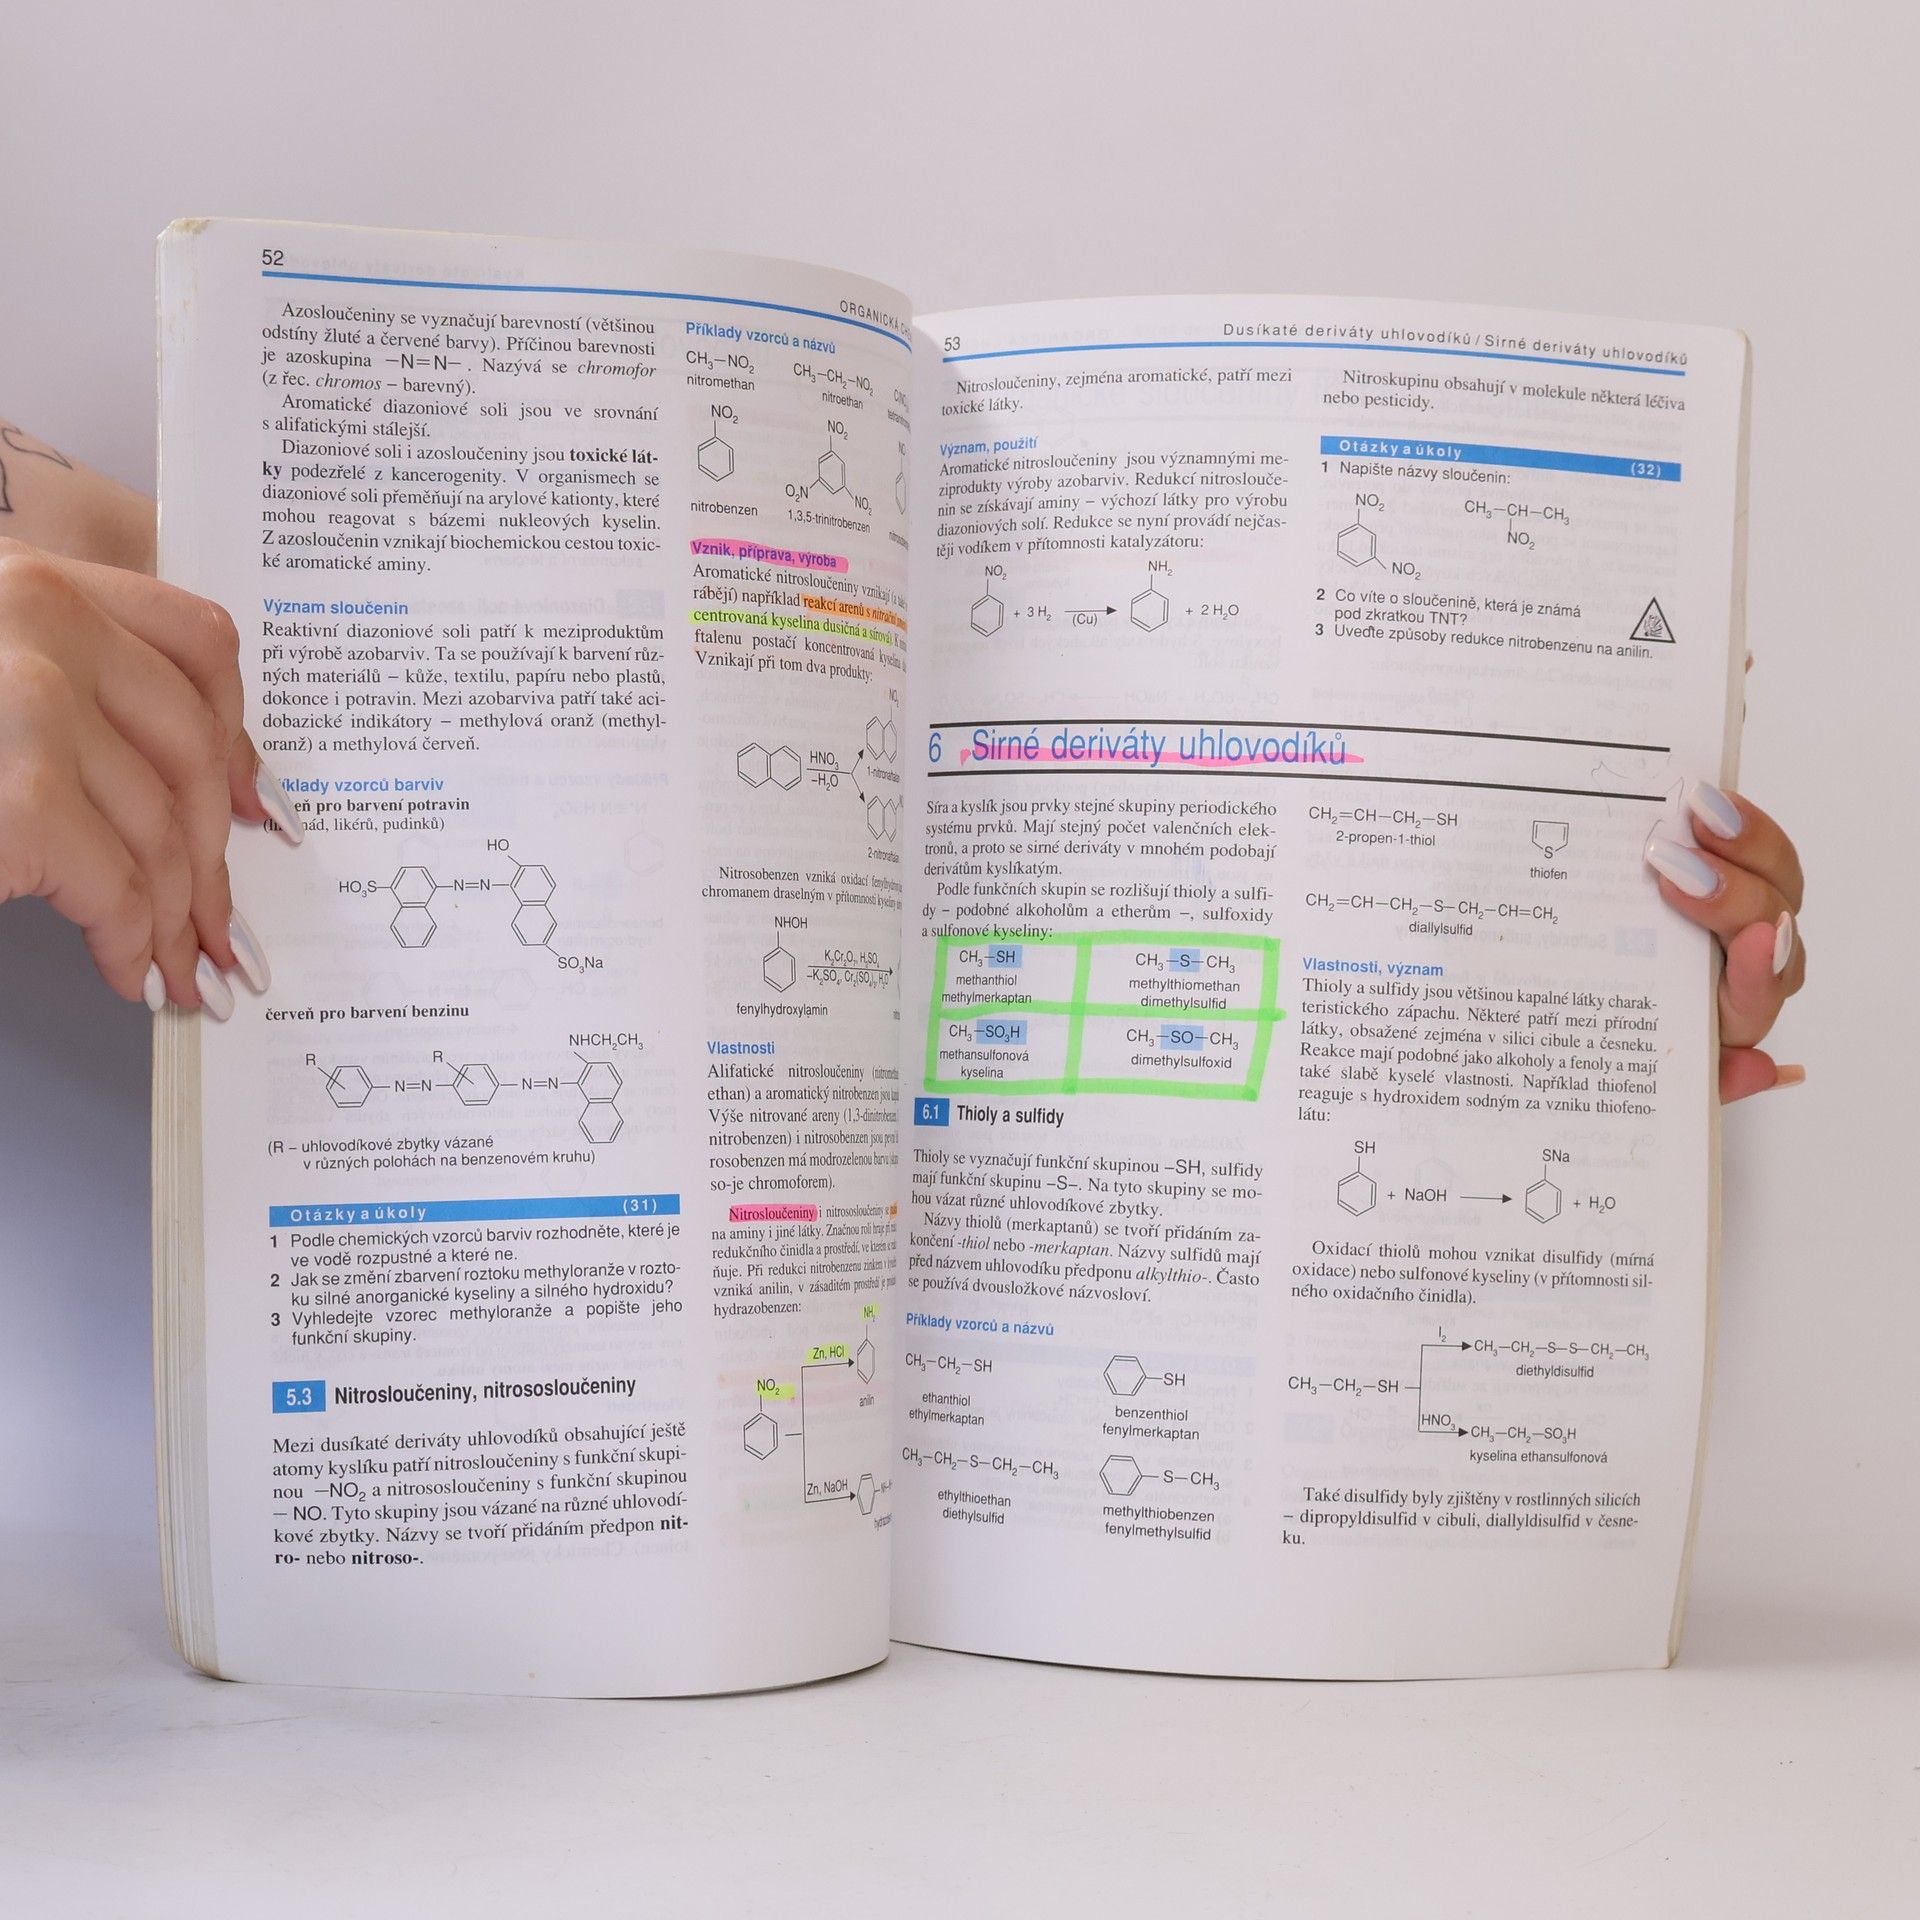 52
ORGANICKÁ
Azosloučeniny se vyznačují barevností (většinou
odstíny žluté a červené barvy). Příčinou barevnosti
je azoskupina –N=N– . Nazývá se chromofor
(z řec. chromos – barevný).
Aromatické diazoniové soli jsou ve srovnání
s alifatickými stálejší.
Diazoniové soli i azosloučeniny jsou toxické lát-
ky podezřelé z kancerogenity. V organismech se
diazoniové soli přeměňují na arylové kationty, které
mohou reagovat s bázemi nukleových kyselin.
Z azosloučenin vznikají biochemickou cestou toxic-
ké aromatické aminy.
Význam sloučenin
Reaktivní diazoniové soli patří k meziproduktům
při výrobě azobarviv. Ta se používají k barvení růz-
ných materiálů – kůže, textilu, papíru nebo plastů,
dokonce i potravin. Mezi azobarviva patří také aci-
dobazické indikátory – methylová oranž (methyl-
oranž) a methylová červeň.
vzorců barviv
pro barvení potravin
likérů, pudinků)
HO
HO₃S N=N
SO₃Na
červeň pro barvení benzinu
NHCH₂CH₃
R R
N=N N=N
(R – uhlovodíkové zbytky vázané
v různých polohách na benzenovém kruhu)
Otázky a úkoly (31)
1 Podle chemických vzorců barviv rozhodněte, které je
ve vodě rozpustné a které ne.
2 Jak se změní zbarvení roztoku methyloranže v rozto-
ku silné anorganické kyseliny a silného hydroxidu?
3 Vyhledejte vzorec methyloranže a popište jeho
funkční skupiny.
5.3 Nitrosloučeniny, nitrososloučeniny
Mezi dusíkaté deriváty uhlovodíků obsahující ještě
atomy kyslíku patří nitrosloučeniny s funkční skupi-
nou –NO₂ a nitrososloučeniny s funkční skupinou
– NO. Tyto skupiny jsou vázané na různé uhlovodí-
kové zbytky. Názvy se tvoří přidáním předpon nit-
ro- nebo nitroso-.
Příklady vzorců a názvů
CH₃–NO₂
nitromethan
CH₃–CH₂–NO₂
nitroethan
NO₂
nitrobenzen
NO₂
O₂N NO₂
1,3,5-trinitrobenzen
Vznik, příprava, výroba
Aromatické nitrosloučeniny vznikají
rábějí) například reakcí arenů s
centrovaná kyselina dusičná a sírová).
ftalenu postačí koncentrovaná kyselina
Vznikají při tom dva produkty:
NO₂
HNO₃
–H₂O
Nitrosobenzen vzniká oxidací
chromanem draselným v přítomnosti kyseliny
NHOH
K₂Cr₂O₇, H₂SO₄
–K₂SO₄, Cr₂(SO₄)₃, H₂O
fenylhydroxylamin
Vlastnosti
Alifatické nitrosloučeniny
ethan) a aromatický nitrobenzen jsou
Výše nitrované areny
nitrobenzen) i nitrosobenzen jsou
rosobenzen má modrozelenou barvu
so-je chromoforem).
Nitrosloučeniny i nitrososloučeniny se
na aminy i jiné látky. Značnou roli hraje při
redukčního činidla a prostředí, ve kterém se
ňuje. Při redukci nitrobenzenu zinkem
vzniká anilin, v zásaditém prostředí je
hydrazobenzen:
NH₂
Zn, HCl
NO₂
anilin
Zn, NaOH
53
Dusíkaté deriváty uhlovodíků / Sirné deriváty uhlovodíků
Nitrosloučeniny, zejména aromatické, patří mezi
toxické látky.
Význam, použití
Aromatické nitrosloučeniny jsou významnými me-
ziprodukty výroby azobarviv. Redukcí nitroslouče-
nin se získávají aminy – výchozí látky pro výrobu
diazoniových solí. Redukce se nyní provádí nejčas-
těji vodíkem v přítomnosti katalyzátoru:
NO₂ NH₂
+ 3 H₂ (Cu) + 2 H₂O
Nitroskupinu obsahují v molekule některá léčiva
nebo pesticidy.
Otázky a úkoly (32)
1 Napište názvy sloučenin:
NO₂
NO₂
CH₃–CH–CH₃
NO₂
2 Co víte o sloučenině, která je známá
pod zkratkou TNT?
3 Uveďte způsoby redukce nitrobenzenu na anilin.
6 Sirné deriváty uhlovodíků
Síra a kyslík jsou prvky stejné skupiny periodického
systému prvků. Mají stejný počet valenčních elek-
tronů, a proto se sirné deriváty v mnohém podobají
derivátům kyslíkatým.
Podle funkčních skupin se rozlišují thioly a sulfi-
dy – podobné alkoholům a etherům –, sulfoxidy
a sulfonové kyseliny:
CH₃–SH
methanthiol
methylmerkaptan
CH₃–S–CH₃
methylthiomethan
dimethylsulfid
CH₃–SO₃H
methansulfonová
kyselina
CH₃–SO–CH₃
dimethylsulfoxid
6.1 Thioly a sulfidy
Thioly se vyznačují funkční skupinou –SH, sulfidy
mají funkční skupinu –S–. Na tyto skupiny se mo-
hou vázat různé uhlovodíkové zbytky.
Názvy thiolů (merkaptanů) se tvoří přidáním za-
končení -thiol nebo -merkaptan. Názvy sulfidů mají
před názvem uhlovodíku předponu alkylthio-. Často
se používá dvousložkové názvosloví.
Příklady vzorců a názvů
CH₃–CH₂–SH
ethanthiol
ethylmerkaptan
SH
benzenthiol
fenylmerkaptan
CH₃–CH₂–S–CH₂–CH₃
ethylthioethan
diethylsulfid
S–CH₃
methylthiobenzen
fenylmethylsulfid
CH₂=CH–CH₂–SH
2-propen-1-thiol
S
thiofen
CH₂=CH–CH₂–S–CH₂–CH=CH₂
diallylsulfid
Vlastnosti, význam
Thioly a sulfidy jsou většinou kapalné látky charak-
teristického zápachu. Některé patří mezi přírodní
látky, obsažené zejména v silici cibule a česneku.
Reakce mají podobné jako alkoholy a fenoly a mají
také slabě kyselé vlastnosti. Například thiofenol
reaguje s hydroxidem sodným za vzniku thiofeno-
látu:
SH SNa
+ NaOH + H₂O
Oxidací thiolů mohou vznikat disulfidy (mírná
oxidace) nebo sulfonové kyseliny (v přítomnosti sil-
ného oxidačního činidla).
I₂
CH₃–CH₂–S–S–CH₂–CH₃
diethyldisulfid
CH₃–CH₂–SH
HNO₃
CH₃–CH₂–SO₃H
kyselina ethansulfonová
Také disulfidy byly zjištěny v rostlinných silicích
– dipropyldisulfid v cibuli, diallyldisulfid v česne-
ku.